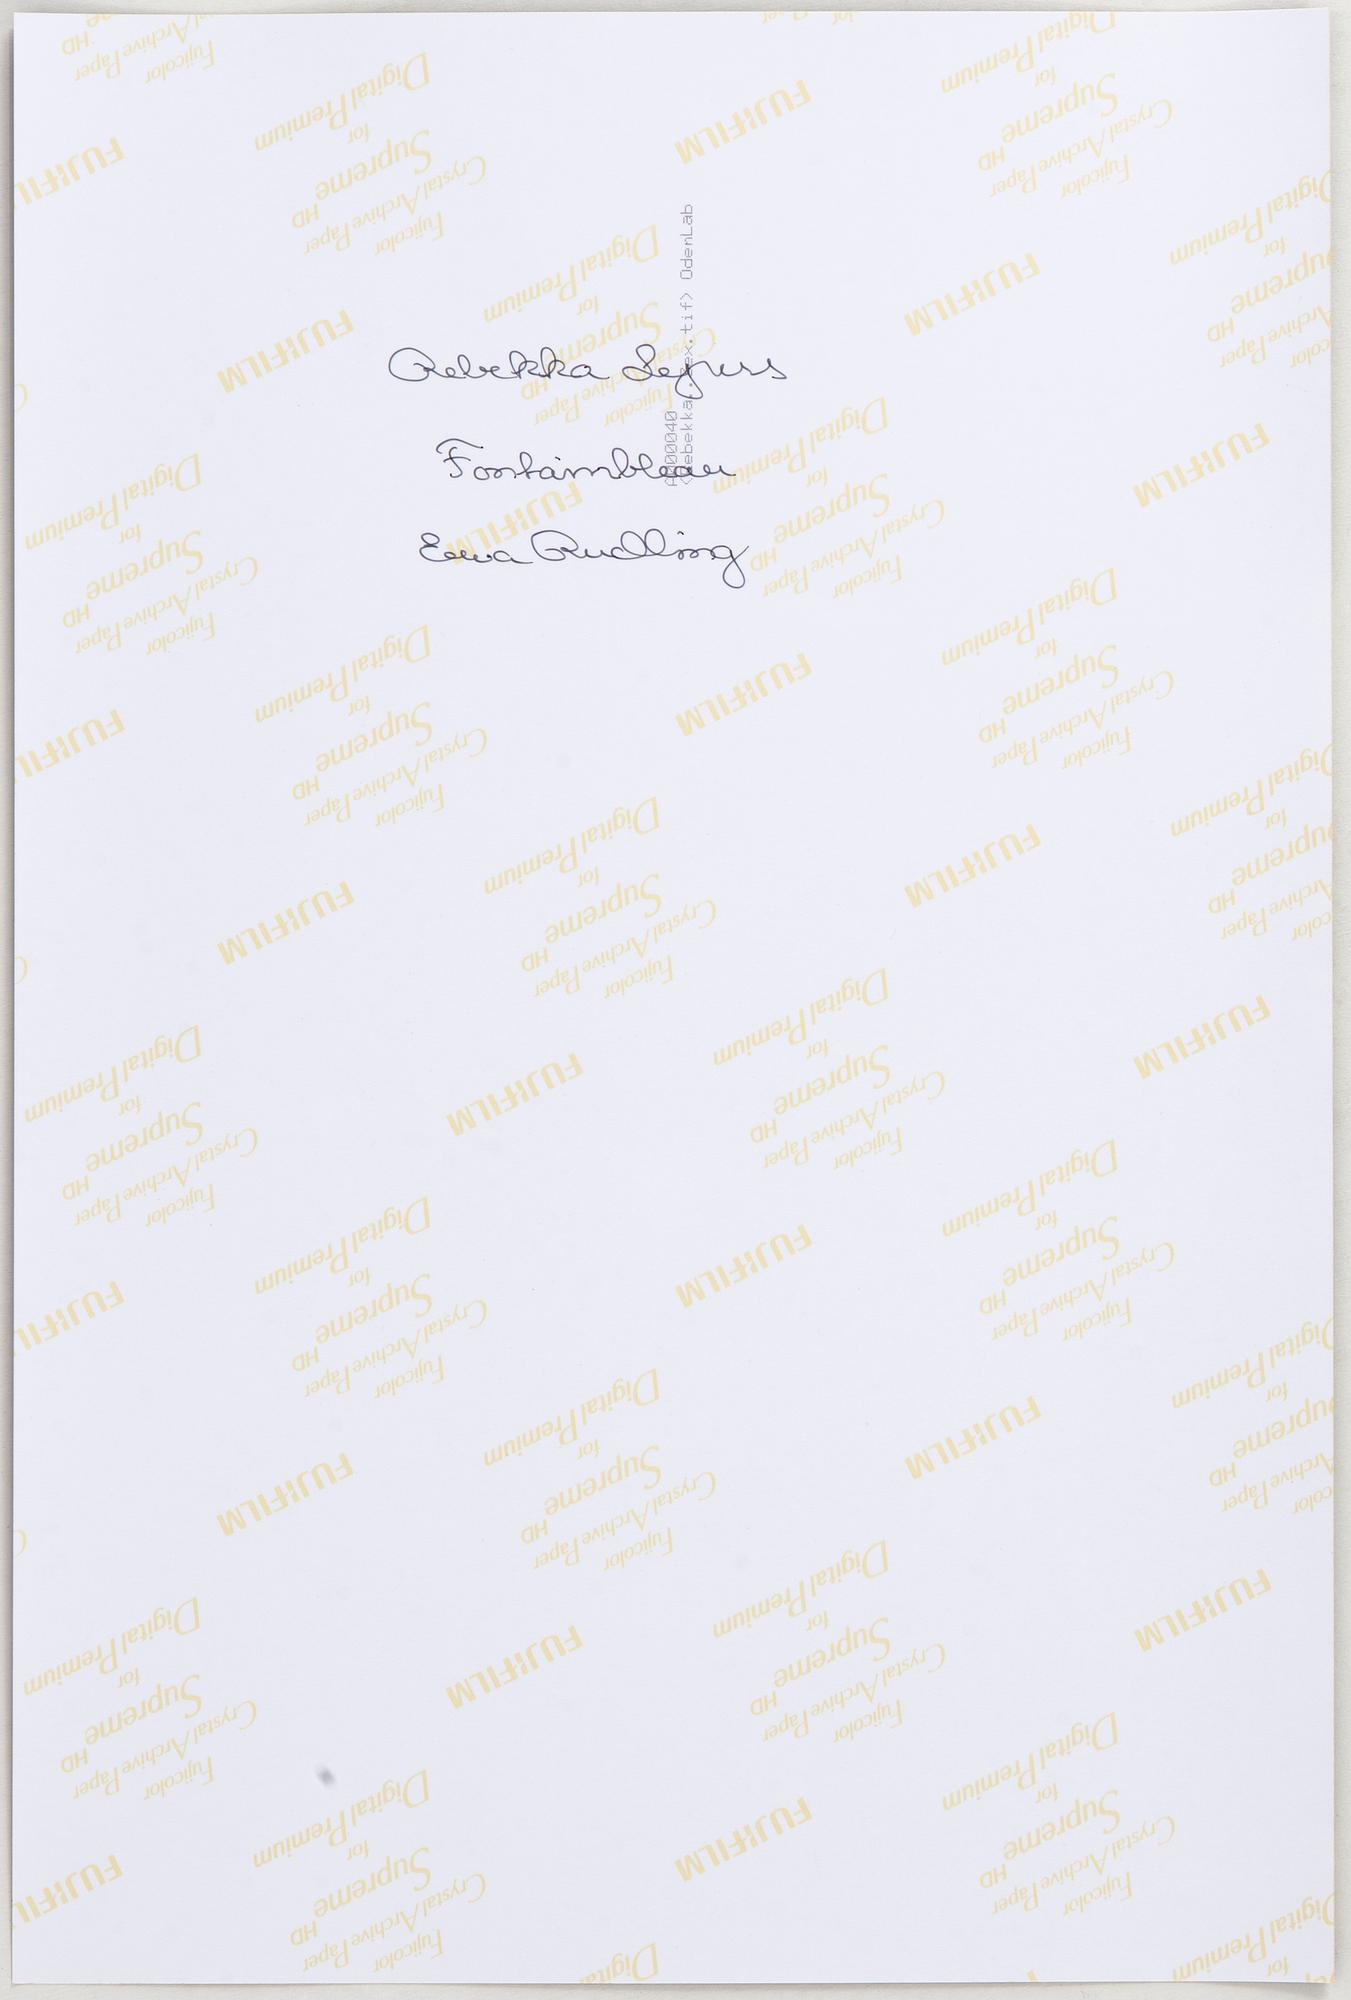 Rebekka
Fontainbleau
Ewa Rudling
A000040
ex.tif> OdenLab
FUJIFILM
Fujicolor
Crystal Archive Paper
Supreme HD
for
Digital Premium